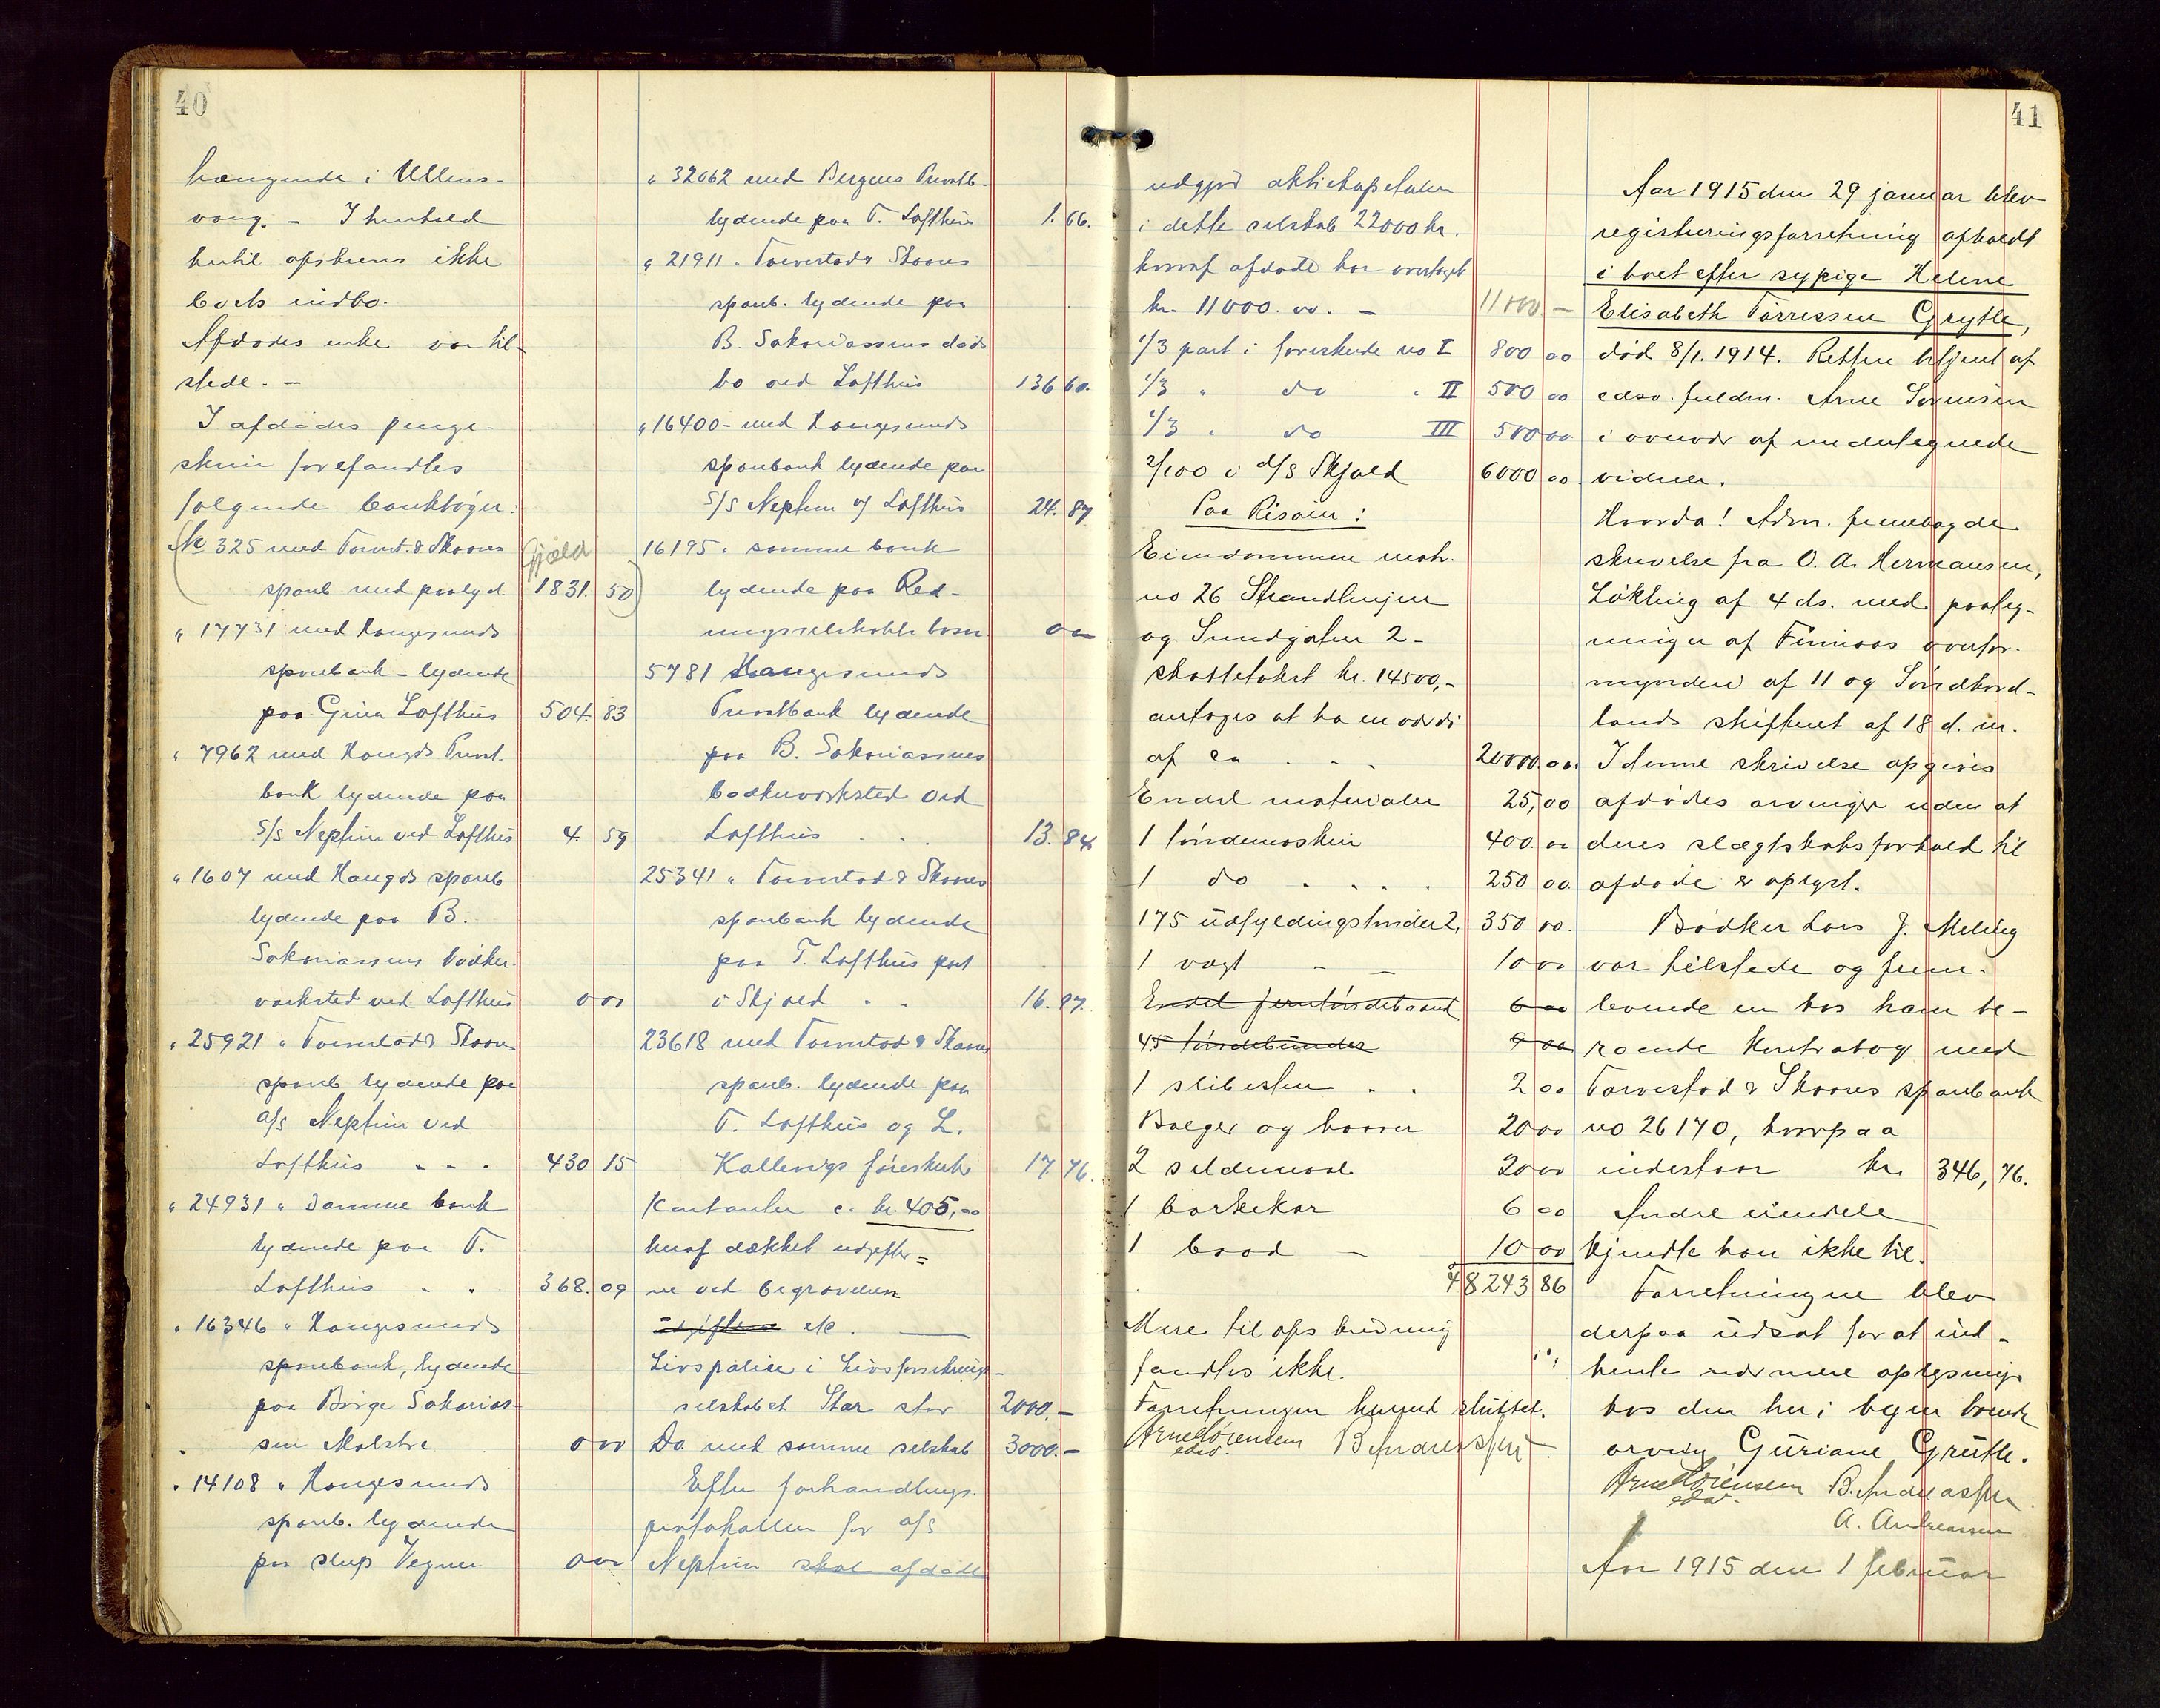 40
hængende i Ullens-
vang. - I henhold
hertil opskrives ikke
boets indbo.
Afdødes enke var til-
stede. -
I afdødes penge-
skrin forefandtes
følgende bankbøger:
No 325 med Torvest. & Skaares
Gjæld
spareb med paalyd. 1831. 50
" 17731 med Haugesunds
sparebank - lydende
paa Gina Lofthus 504. 83
" 7962 med Haugds Privat.
bank lydende paa
S/S Neptun ved Lofthus 4. 59
" 1607 med Haugds spareb
lydende paa B.
Sakariassens bødker-
verksted ved Lofthus 0 00
" 25921 " Torvestad & Skaare
spareb lydende paa
a/s Neptun ved
Lofthus " - . 430 15
" 24931 " Samme bank
lydende paa T.
Lofthus . . 368. 09
" 16346 " Haugesunds
sparebank, lydende
paa Børge Sakarias-
sen Malstre 0 00
" 14108 " Haugesunds
spareb. lydende
paa slup Vegner 0 00
" 32062 med Bergens Privatb.
lydende paa T. Lofthus 1. 66.
" 21911 . Torvestad & Skaares
spareb. lydende paa
B. Sakariassens døds
bo ved Lofthus 136 60.
" 16400 - med Haugesunds
sparebank lydende paa
S/S Neptun v/ Lofthus 24. 87
16195 . samme bank
lydende paa Red-
ningsselskabets basar 0 00
5781 Haugesunds
Privatbank lydende
paa B. Sakariassens
bødkerverksted ved
Lofthus . . . 13. 84
25341 " Torvestad & Skaares
sparebank lydende
paa T. Lofthus part
i Skjold . . 16. 87.
23618 med Torvestad & Skaares
spareb. lydende paa
T. Lofthus og L.
Kallevigs føreskute 17. 76.
Kontanter c. kr. 405,00
heraf dækket udgifter=
ne ved begravelsen
udgifterne etc.
Livspolice i Livsforsikrings-
selskabet Star stor 2000. -
Do med samme selskab 3000. -
Efter forhandlings-
protokollen for a/s
Neptun skal afdøde
41
udgjør aktiekapitalen
i dette selskab 22000 kr.
hvoraf afdøde har overtaget
kr. 11000. 00. - 11000 -
1/3 part i føreskute no I 800 00
1/3 " do " II 500 00
1/3 . do III 500 00.
2/100 i d/s Skjold 6000 00.
Paa Risøen:
Eiendommen matr.
no 26 Strandlinjen
og Sundgaten 2 -
skattetakst kr. 14500,-
antages at ha en værdi
af ca . . . 20000. 00.
Endel materialer 25, 00
1 tøndemaskin 400. 00
1 do . . . . 250 00.
175 udfyldingstønder 2, 350 00.
1 vægt - - 10 00
Endel jerntøndebaand 6 00
45 tøndebunder 9 00
1 slibesten . . 2 00
Bolger og baarer 20 00
2 sildemaal 20 00
1 barkekar 6 00
1 baad - 10 00
48243 86
Mere til opskrivning
fandtes ikke.
Forretningen herved sluttet.
Arne Sörensen B Andreassen
edsv.
Aar 1915 den 29 januar blev
registreringsforretning afholdt
i boet efter sypige Helene
Elisabeth Tørressen Grytle,
død 8/1. 1914. Retten betjent af
edsv. fuldm. Arne Sørensen
i overvær af undertegnede
vidner.
Hvorda! Adm. fremlagde
skrivelse fra O. A. Hermansen,
Løkling af 4 ds. med paateg-
ninger af Finnaas overfor-
mynderi af 11 og Søndhord-
lands skifteret af 18 d. m.
I denne skrivelse opgives
afdødes arvinger uden at
deres slægtskabsforhold til
afdøde er oplyst.
Bødker Lars J. Melling
var tilstede og frem-
leverede en hos ham be-
roende Kontrabog med
Torvestad & Skaares sparebank
no 26170, hvorpaa
indestaar kr. 346, 76.
Andre eiendele
kjendte han ikke til.
Forretningen blev
derpaa udsat for at ind-
hente nærmere oplysninger
hos den her i byen boende
arving Guriane Grütle.
Arne Sörensen B. Andreassen
edsv. A. Andreassen
Aar 1915 den 1 februar